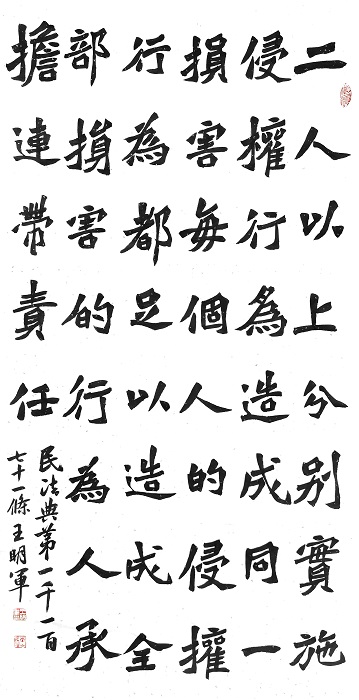 二人以上分别實施
侵權行為造成同一
損害每個人的侵權
行為都足以造成全
部損害的行為人承
擔連帶責任
民法典第一千一百
七十一條王明軍